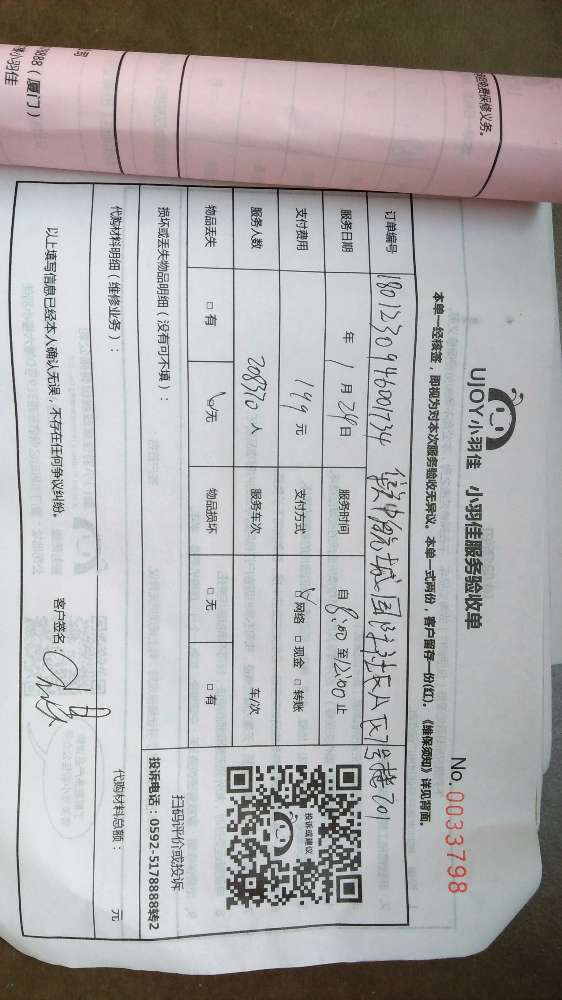 8888（厦门）
小羽佳
司
免费保修义务。
UJOY小羽佳 小羽佳服务验收单
No.0033798
本单一经核签，即视为对本次服务验收无异议。本单一式两份，客户留存一份(红)。《维保须知》详见背面。
订单编号 1801230946001734 中航城国际社区A区7号楼701
服务日期 年 1 月 24 日 服务时间 自 8:00 至 12:00 止
支付费用 199 元 支付方式 ☑网络 □现金 □转账
服务人数 208370 人 服务车次 车/次
物品丢失 □有 ☑无 物品损坏 □无 □有
投诉或建议
扫码评价或投诉
投诉电话：0592-5178888转2
损坏或丢失物品明细（没有可不填）：
代购材料明细（维修业务）：
代购材料总额： 元
以上填写信息已经本人确认无误，不存在任何争议纠纷。
客户签名：